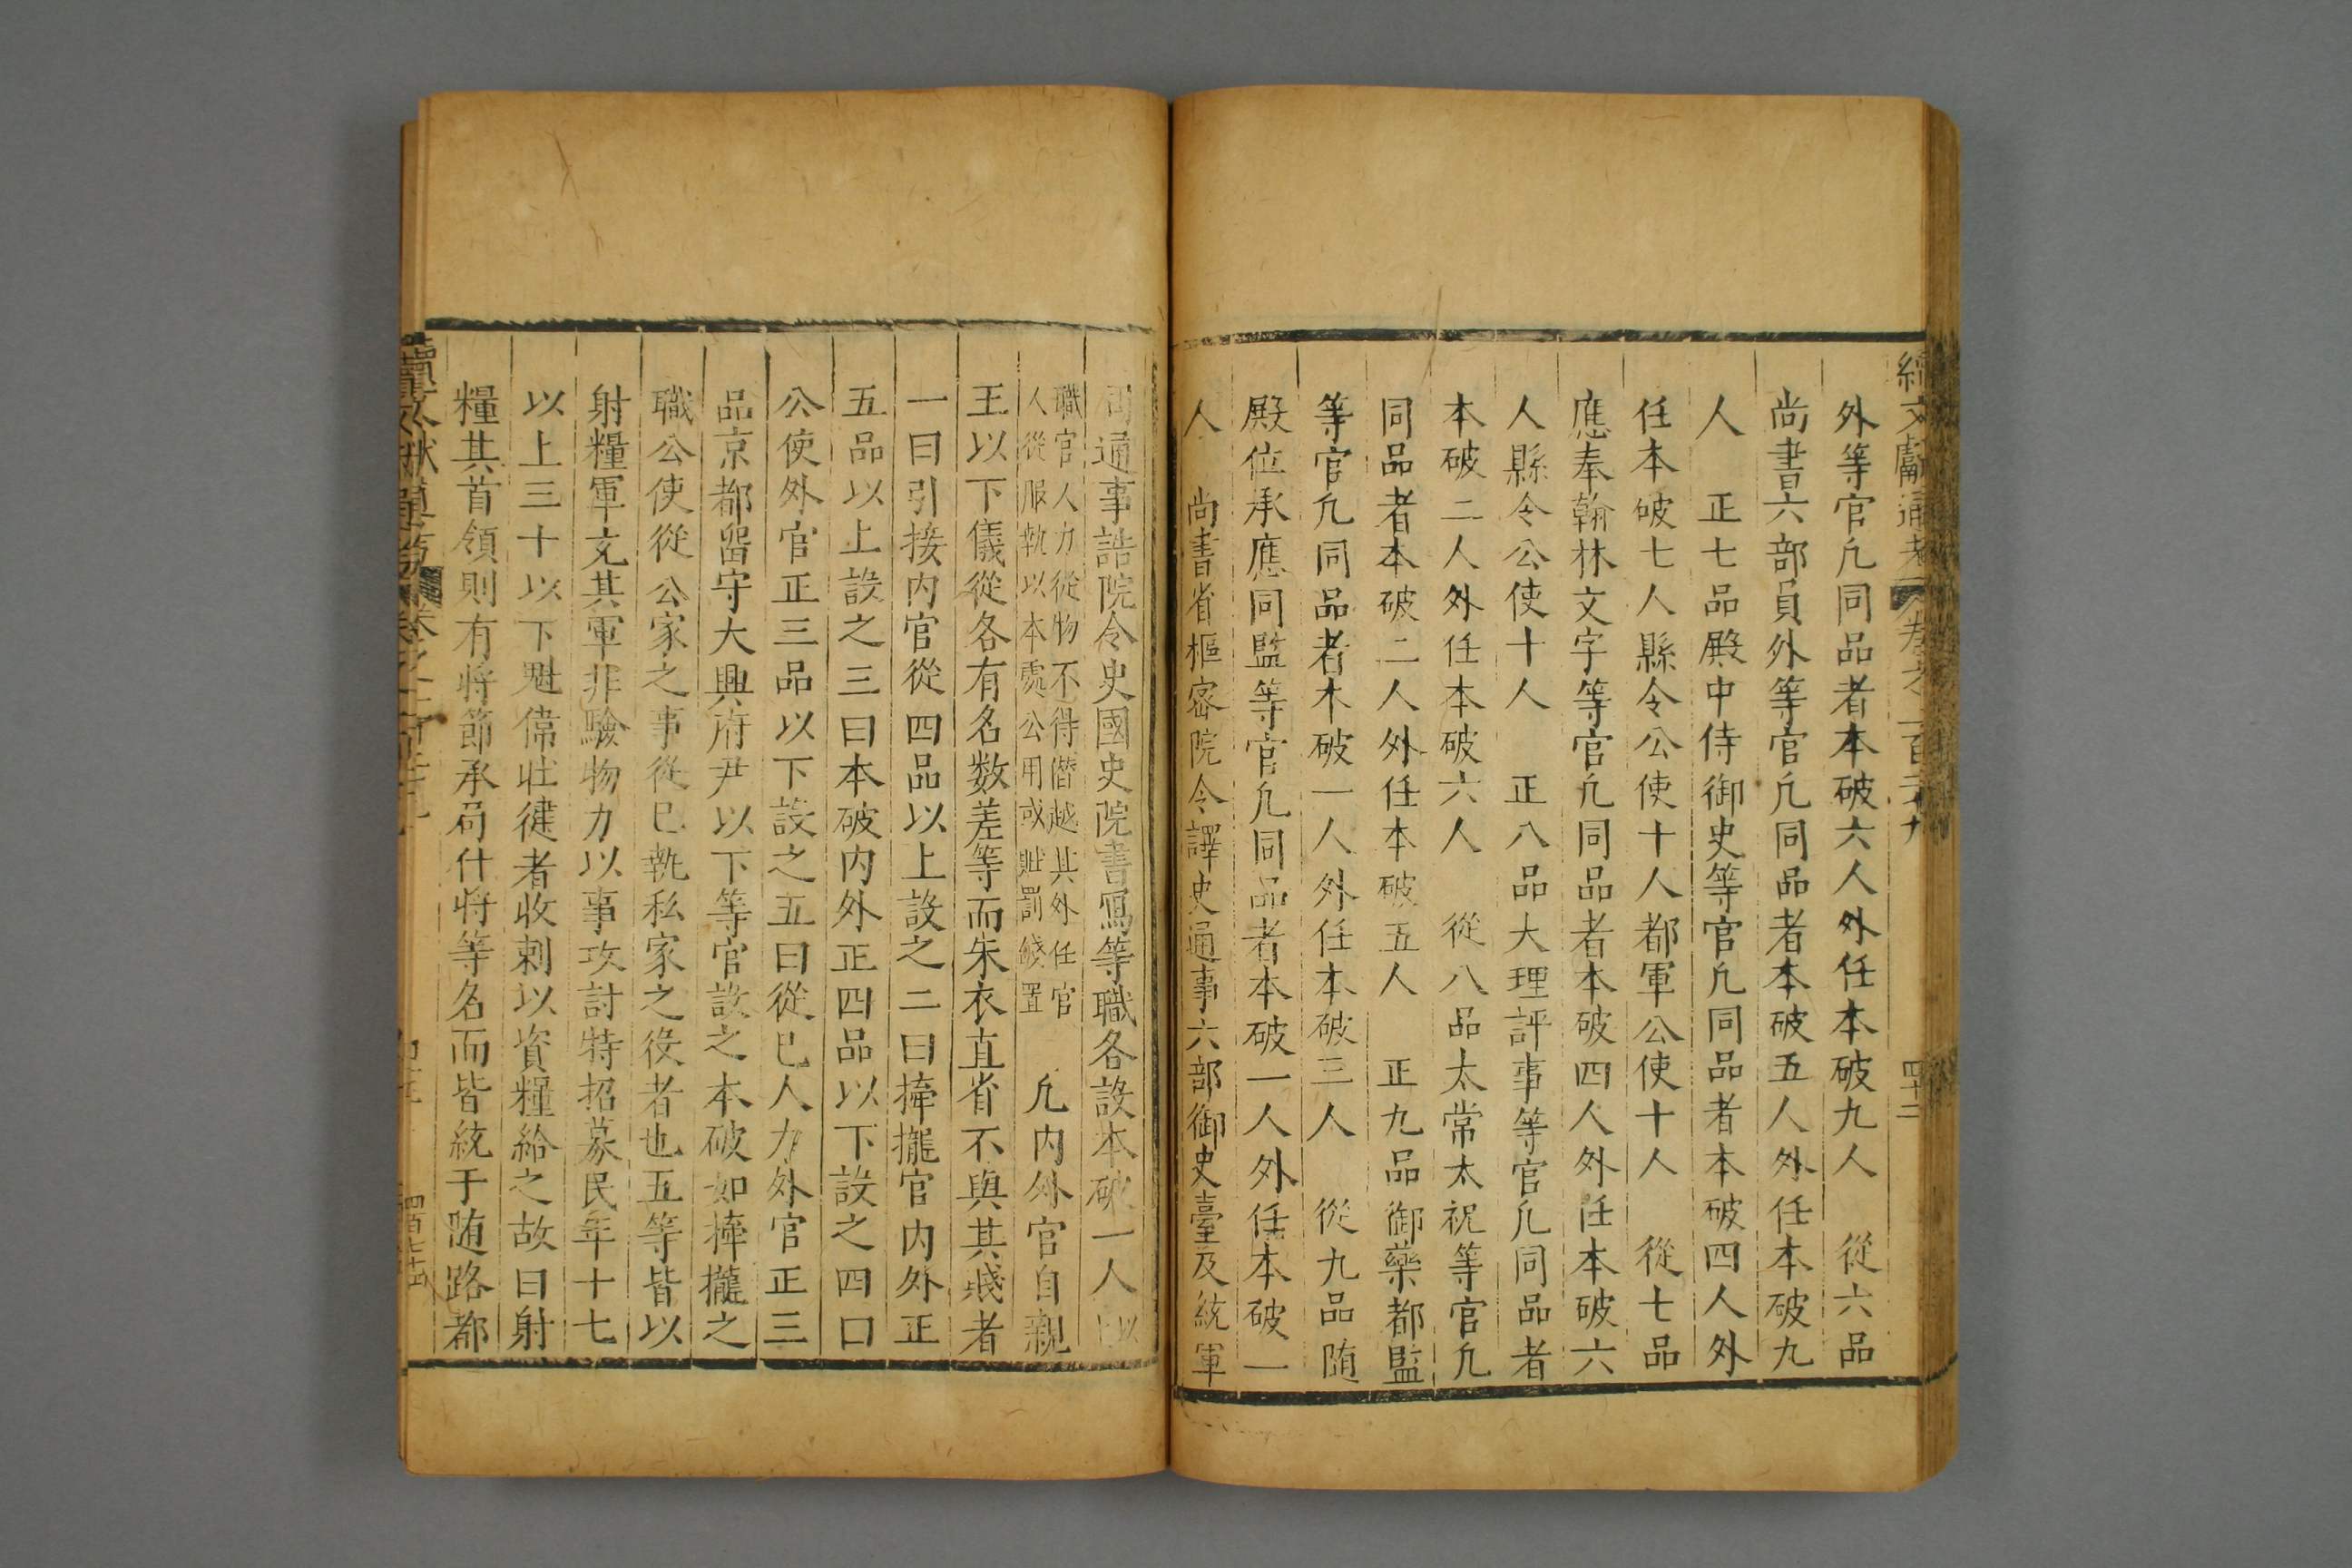 續文獻通考 卷之一百二十九 四十二
外等官凢同品者本破六人外任本破九人 從六品
尚書六部員外等官凢同品者本破五人外任本破九
人 正七品殿中侍御史等官凢同品者本破四人外
任本破七人縣令公使十人都軍公使十人 從七品
應奉翰林文字等官凢同品者本破四人外任本破六
人縣令公使十人 正八品大理評事等官凢同品者
本破二人外任本破六人 從八品太常太祝等官凢
同品者本破二人外任本破五人 正九品御藥都監
等官凢同品者木破一人外任本破三人 從九品随
殿位承應同監等官凢同品者本破一人外任本破一
人 尚書省樞宻院令譯史通事六部御史臺及統軍
司通事誥院令史國史院書寫等職各設本破一人以上
職官人力從物不得僭越其外任官
人從服執以本處公用或賍罰錢置 凢内外官自親
王以下儀從各有名数差等而朱衣直省不與其㦮者
一曰引接内官從四品以上設之二曰捧攏官内外正
五品以上設之三曰本破内外正四品以下設之四口
公使外官正三品以下設之五曰從已人力外官正三
品京都留守大興府尹以下等官設之本破如捧攏之
職公使從公家之事從已執私家之役者也五等皆以
射糧軍充其軍非驗物力以事攻討特招募民年十七
以上三十以下魁偉壮徤者收刺以資糧給之故曰射
糧其首領則有将節承局什将等名而皆統于随路都